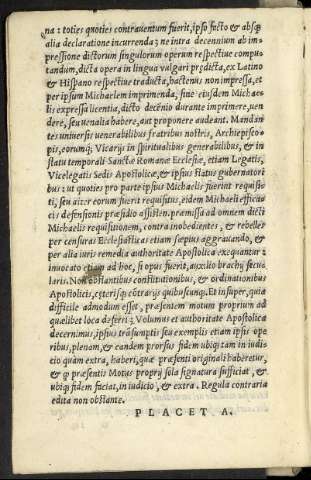 na: toties quoties contrauentum fuerit, ipso facto & absq;
alia declaratione incurrenda: ne intra decennium ab im-
pressione dictorum singulorum operum respectiue compu-
tandum, dicta opera in lingua vulgari prędicta, ex Latino
& Hispano respectiue traducta, hactenus non impressa, et
per ipsum Michaelem imprimenda, sine eiusdem Michae-
lis expressa licentia, dicto decẽnio durante imprimere, uen
dere, seu uenalia habere, aut proponere audeant. Mandan
tes uniuersis uenerabilibus fratribus nostris, Archiepisco-
pis, eorumq; Vicarijs in spiritualibus generalibus, & in
statu temporali Sanctæ Romanæ Ecclesiæ, etiam Legatis,
Vicelegatis Sedis Apostolicæ, & ipsius status gubernatori
bus: ut quoties pro parte ipsius Michaelis fuerint requisi-
ti, seu alter eorum fuerit requisitus, eidem Michaeli efficacis
defensionis præsidio assisten. præmissa ad omnem dicti
Michaelis requisitionem, contra inobedientes, & rebelles
per censuras Ecclesiasticas etiam sæpius aggrauando, &
per alia iuris remedia authoritate Apostolica exequantur:
inuocato etiam ad hoc, si opus fuerit, auxilio brachij secu-
laris. Non obstantibus constitutionibus, & ordinationibus
Apostolicis, cęterisq; cõtrarijs quibuscunq. Et insuper, quia
difficile admodum esset, præsentem motum proprium ad
quælibet loca deferri: Volumus et authoritate Apostolica
decernimus, ipsius trãsumptis seu exemplis etiam ipsis ope
ribus, plenam, & eandem prorsus fidem ubiq; tam in iudi-
cio quàm extra, haberi, quæ præsenti originali haberetur,
& q præsentis Motus proprij sola signatura sufficiat, &
ubiq; fidem faciat, in iudicio, & extra. Regula contraria
edita non obstante.
PLACET A.